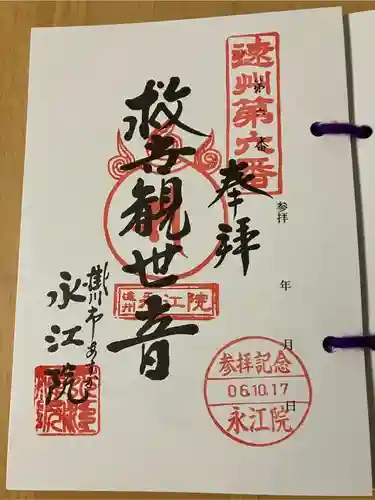 遠州第六番
第六番
奉拝
参拝
年
月
日
救世観世音
遠州 永江院
掛川市
永江院
参拝記念
06.10.17
永江院